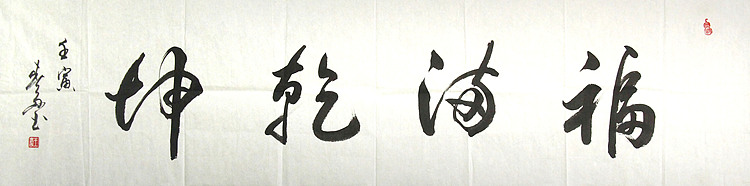 福满乾坤
壬寅